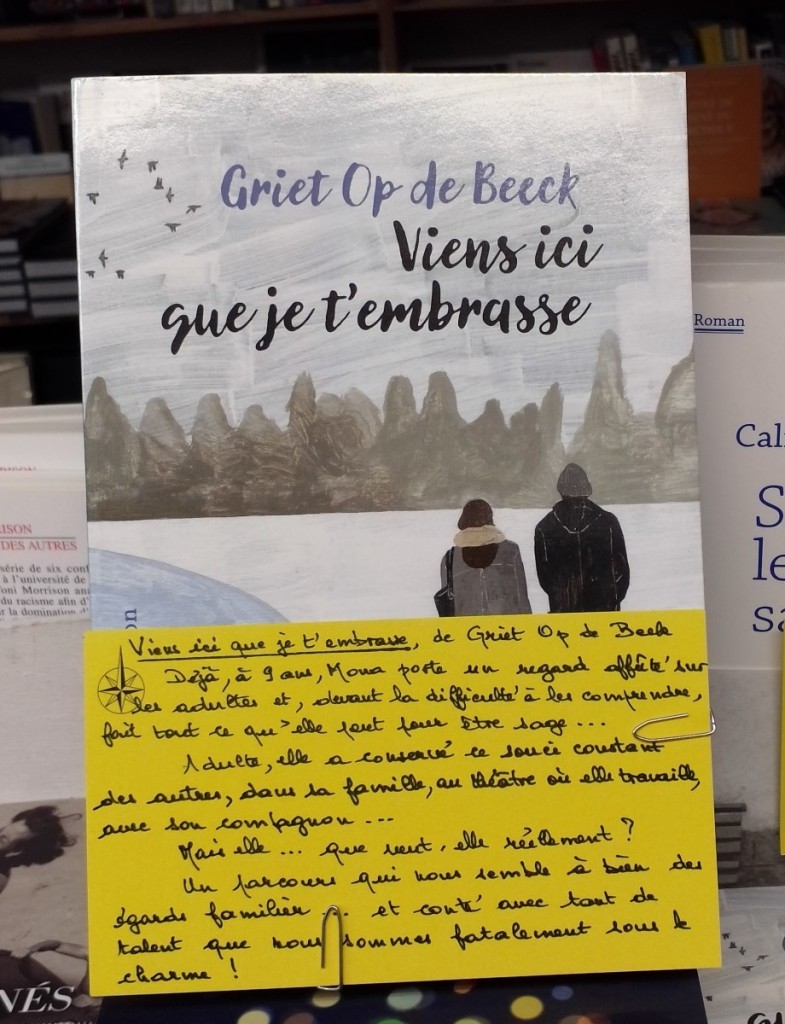 Griet Op de Beeck
Viens ici
que je t'embrasse
Roman
Cal
S
le
sa
RISON
DES AUTRES
série de six conf
à l'université de
Toni Morrison an
du racisme afin d'
r la domination d'
on
Viens ici que je t'embrasse, de Griet Op de Beek
Déjà, à 9 ans, Mona porte un regard affûté sur
les adultes et, devant la difficulté à les comprendre,
fait tout ce qu'elle peut pour être sage...
Adulte, elle a conservé ce souci constant
des autres, dans sa famille, au théâtre où elle travaille,
avec son compagnon...
Mais elle... que veut-elle réellement ?
Un parcours qui nous semble à bien des
égards familier... et conté avec tant de
talent que nous sommes fatalement sous le
charme !
NÉS